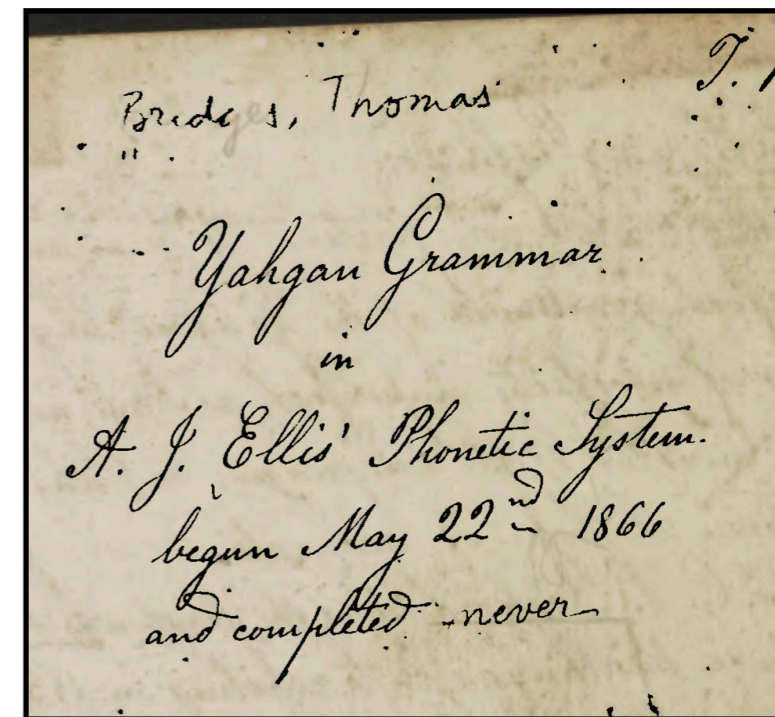 T.
Bridges, Thomas
"
Yahgan Grammar
in
A. J. Ellis' Phonetic System.
begun May 22nd 1866
and completed - never